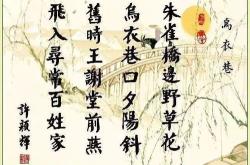 烏衣巷
朱雀橋邊野草花
烏衣巷口夕陽斜
舊時王謝堂前燕
飛入尋常百姓家
許穎擇